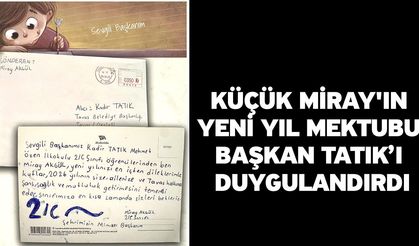 Sevgili Başkanım
GÖNDEREN:
Miray AKGÜL
Alıcı: Kadir TATIK
Tavas Belediye Başkanlığı
Sevgili Başkanımız Kadir TATIK Mehmet
Özen İlkokulu 2/C Sınıfı öğrencilerinden ben
Miray AKGÜL, yeni yılınızı en içten dileklerimle
kutlar, 2026 yılının size, ailenize ve Tavas halkına
sağlık ve mutluluk getirmesini temenni
eder, sınıfımıza en kısa zamanda sizleri bekleriz.
2/C
Miray AKGÜL
2/C Sınıfı
Şehrimizin Mimarı Başkanım
KÜÇÜK MİRAY'IN
YENİ YIL MEKTUBU
BAŞKAN TATIK'I
DUYGULANDIRDI